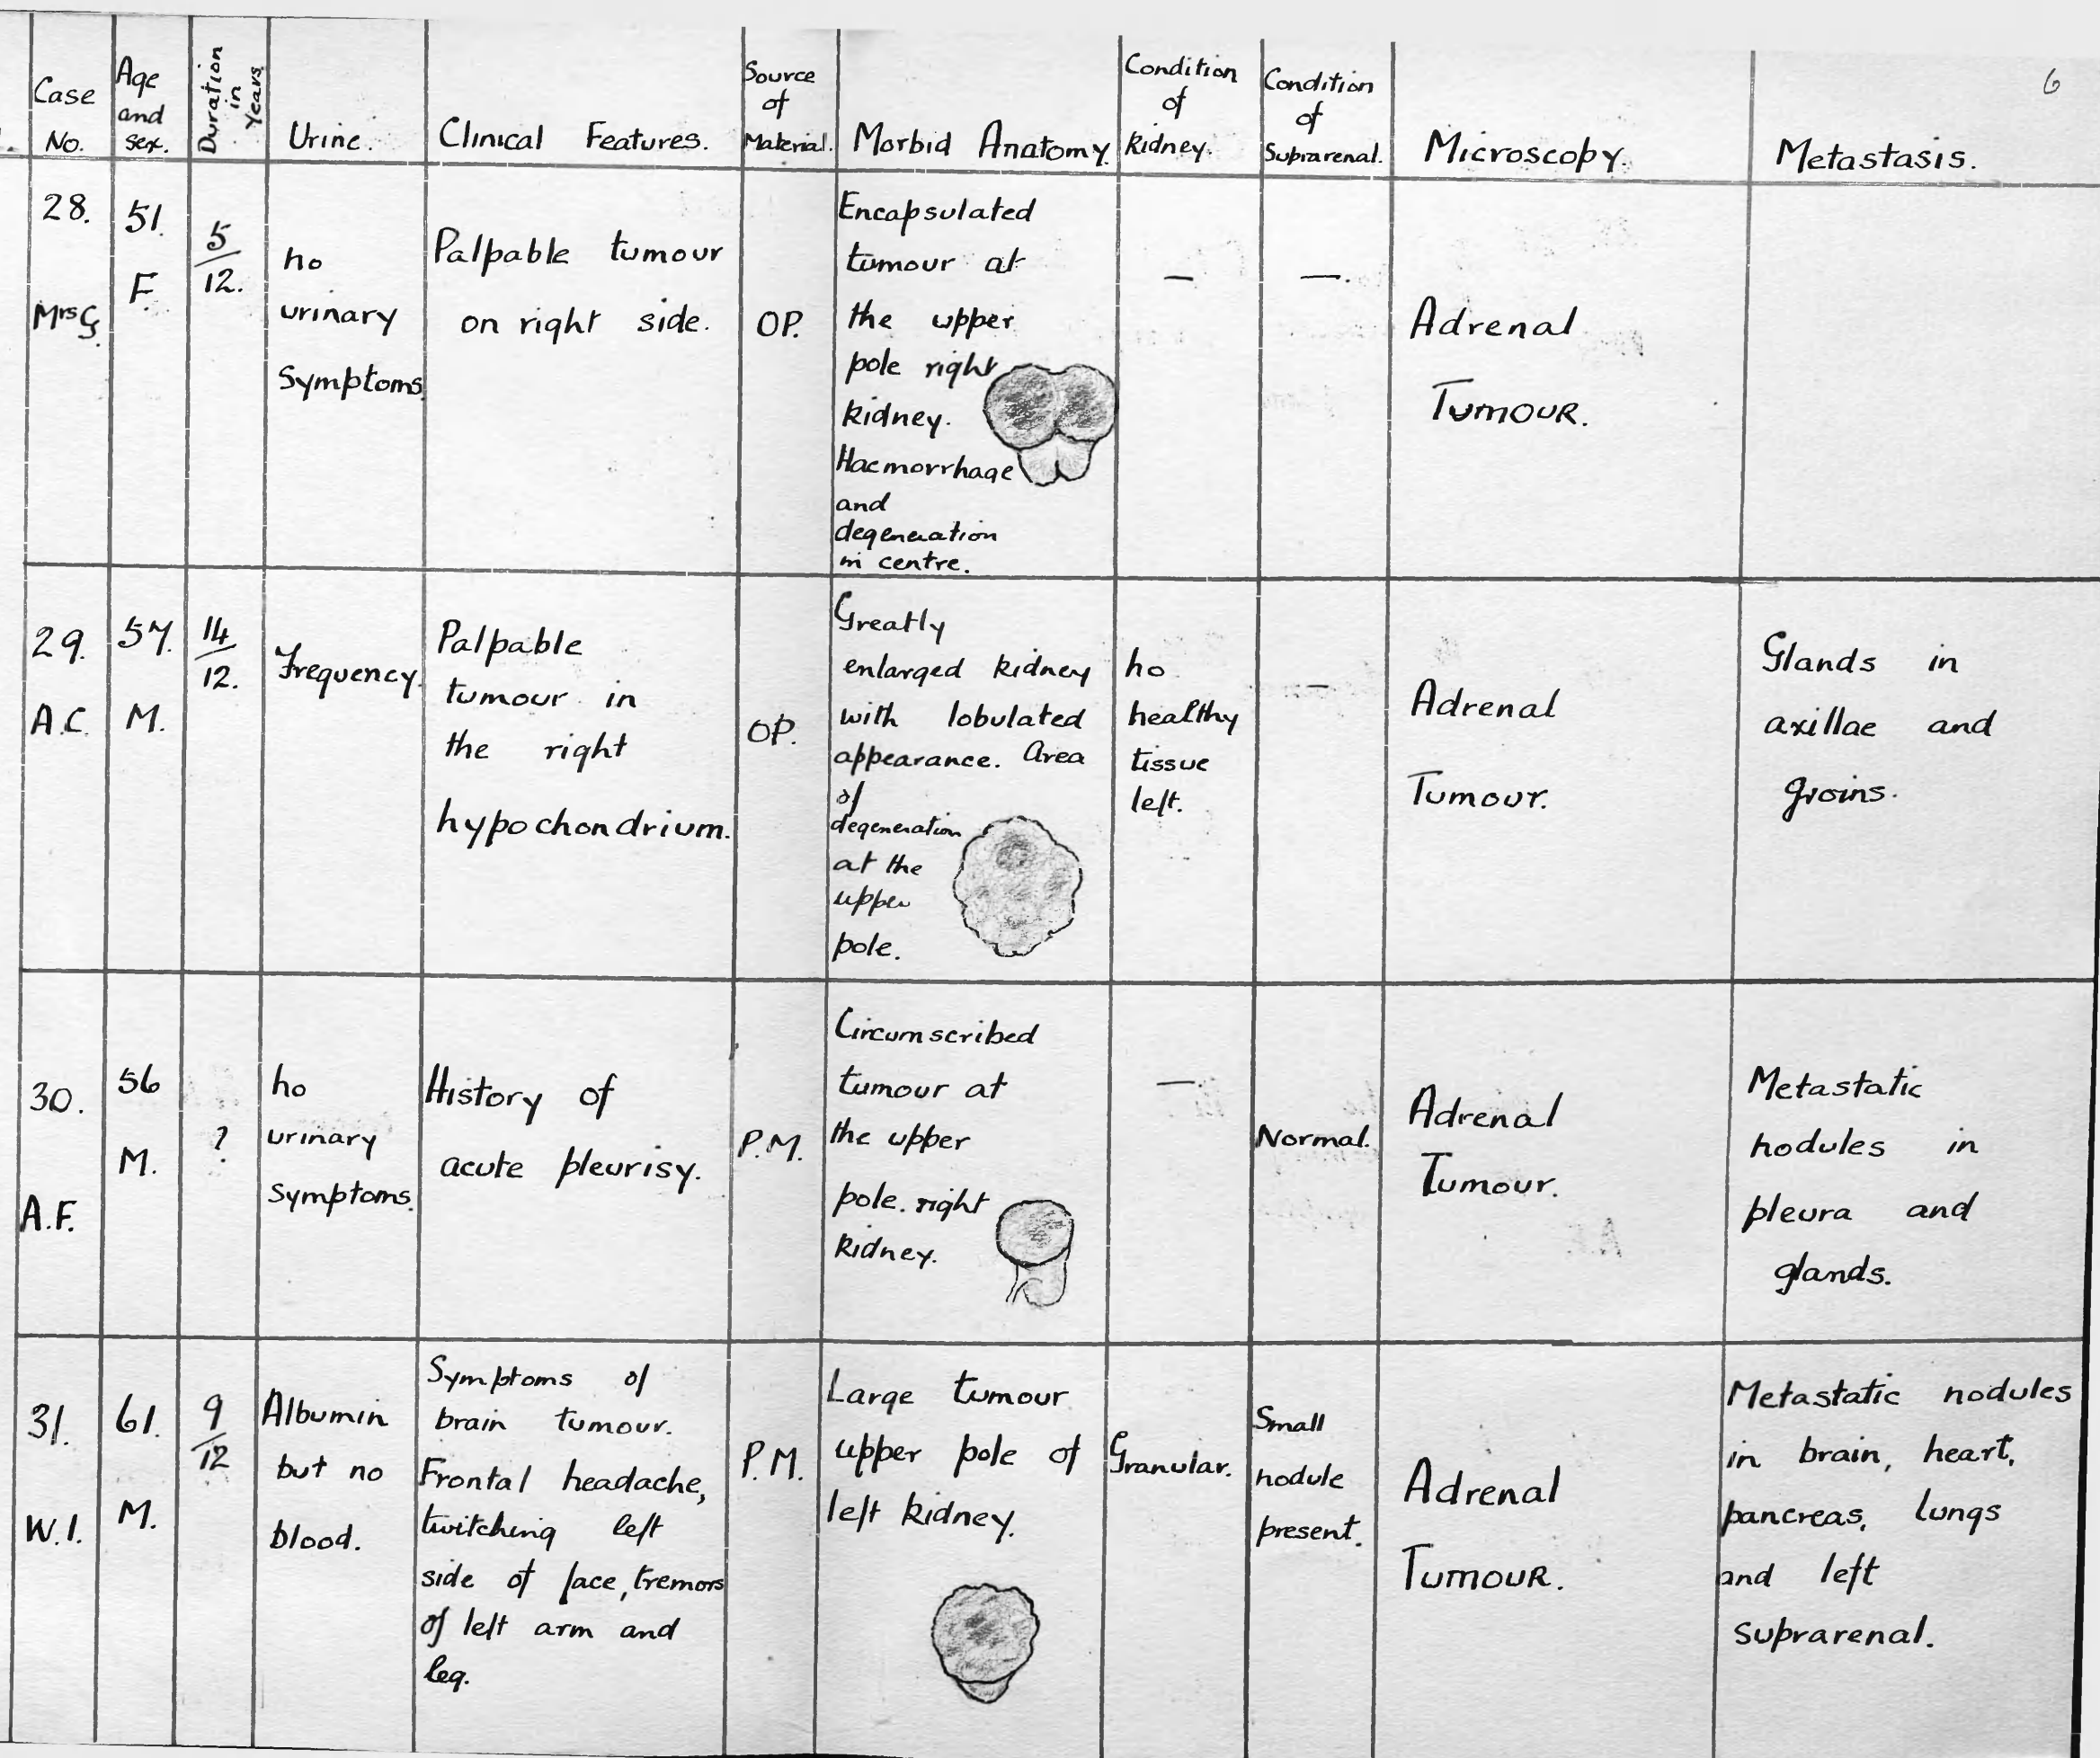 6
Case
No.
Age
and
sex.
Duration
in
Years
Urine.
Clinical Features.
Source
of
Material.
Morbid Anatomy.
Condition
of
Kidney.
Condition
of
Suprarenal.
Microscopy.
Metastasis.
28.
Mrs G.
51.
F.
5
12.
no
urinary
Symptoms.
Palpable tumour
on right side.
OP.
Encapsulated
tumour at
the upper
pole right
kidney.
Haemorrhage
and
degeneration
in centre.
—
—.
Adrenal
TUMOUR.
29.
A.C.
57.
M.
14
12.
Frequency.
Palpable
tumour in
the right
hypochondrium.
OP.
Greatly
enlarged kidney
with lobulated
appearance. Area
of
degeneration
at the
upper
pole.
no
healthy
tissue
left.
—
Adrenal
Tumour.
Glands in
axillae and
groins.
30.
A.F.
56
M.
?
no
urinary
symptoms.
History of
acute pleurisy.
P.M.
Circumscribed
tumour at
the upper
pole. right
kidney.
—
Normal.
Adrenal
Tumour.
Metastatic
nodules in
pleura and
glands.
31.
W.I.
61.
M.
9
12
Albumin
but no
blood.
Symptoms of
brain tumour.
Frontal headache,
twitching left
side of face, tremors
of left arm and
leg.
P.M.
Large tumour
upper pole of
left kidney.
Granular.
Small
nodule
present.
Adrenal
TUMOUR.
Metastatic nodules
in brain, heart,
pancreas, lungs
and left
suprarenal.